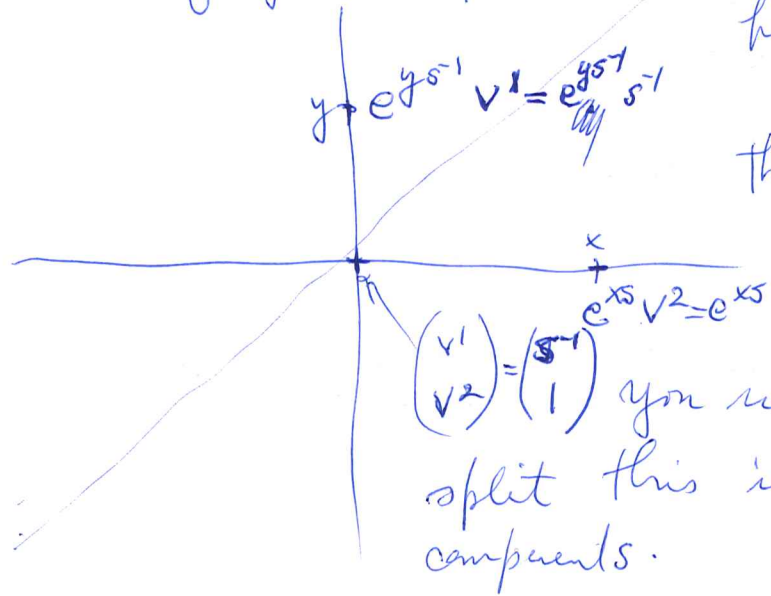 y e^{ys^{-1}} v^1 = e^{ys^{-1}} s^{-1}
x
e^{xs} v^2 = e^{xs}
(v^1 v^2) = (s^{-1} 1) you
split this
compuents.